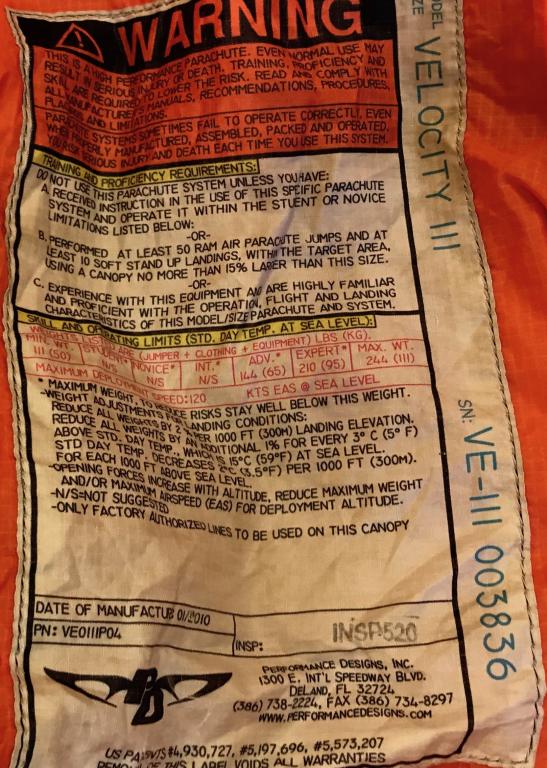 WARNING
THIS IS A HIGH PERFORMANCE PARACHUTE. EVEN NORMAL USE MAY
RESULT IN SERIOUS INJURY OR DEATH. TRAINING, PROFICIENCY AND
SKILL ARE REQUIRED TO LOWER THE RISK. READ AND COMPLY WITH
ALL MANUFACTURER'S MANUALS, RECOMMENDATIONS, PROCEDURES,
PLACARDS AND LIMITATIONS.
PARACHUTE SYSTEMS SOMETIMES FAIL TO OPERATE CORRECTLY, EVEN
WHEN PROPERLY MANUFACTURED, ASSEMBLED, PACKED AND OPERATED.
YOU RISK SERIOUS INJURY AND DEATH EACH TIME YOU USE THIS SYSTEM.
TRAINING AND PROFICIENCY REQUIREMENTS:
DO NOT USE THIS PARACHUTE SYSTEM UNLESS YOU HAVE:
A. RECEIVED INSTRUCTION IN THE USE OF THIS SPECIFIC PARACHUTE
SYSTEM AND OPERATE IT WITHIN THE STUDENT OR NOVICE
LIMITATIONS LISTED BELOW:
-OR-
B. PERFORMED AT LEAST 50 RAM AIR PARACHUTE JUMPS AND AT
LEAST 10 SOFT STAND UP LANDINGS, WITHIN THE TARGET AREA,
USING A CANOPY NO MORE THAN 15% LARGER THAN THIS SIZE.
-OR-
C. EXPERIENCE WITH THIS EQUIPMENT AND ARE HIGHLY FAMILIAR
AND PROFICIENT WITH THE OPERATION, FLIGHT AND LANDING
CHARACTERISTICS OF THIS MODEL/SIZE PARACHUTE AND SYSTEM.
SKILL AND OPERATING LIMITS (STD. DAY TEMP. AT SEA LEVEL):
WEIGHTS LISTED ARE (JUMPER + CLOTHING + EQUIPMENT) LBS (KG).
MIN. WT. STUDENT* NOVICE* INT.* ADV.* EXPERT* MAX. WT.
111 (50) N/S N/S N/S 144 (65) 210 (95) 244 (111)
MAXIMUM DEPLOYMENT SPEED: 120 KTS EAS @ SEA LEVEL
* MAXIMUM WEIGHT, TO REDUCE RISKS STAY WELL BELOW THIS WEIGHT.
-WEIGHT ADJUSTMENTS FOR LANDING CONDITIONS:
REDUCE ALL WEIGHTS BY 2% PER 1000 FT (300M) LANDING ELEVATION.
REDUCE ALL WEIGHTS BY AN ADDITIONAL 1% FOR EVERY 3° C (5° F)
ABOVE STD. DAY TEMP., WHICH IS 15°C (59°F) AT SEA LEVEL.
STD DAY TEMP. DECREASES 2°C (3.5°F) PER 1000 FT (300M).
FOR EACH 1000 FT ABOVE SEA LEVEL.
-OPENING FORCES INCREASE WITH ALTITUDE, REDUCE MAXIMUM WEIGHT
AND/OR MAXIMUM AIRSPEED (EAS) FOR DEPLOYMENT ALTITUDE.
-N/S=NOT SUGGESTED
-ONLY FACTORY AUTHORIZED LINES TO BE USED ON THIS CANOPY
DATE OF MANUFACTURE 01/2010
PN: VE0111P04
INSP: INSP520
PD
PERFORMANCE DESIGNS, INC.
1300 E. INT'L SPEEDWAY BLVD.
DELAND, FL 32724
(386) 738-2224, FAX (386) 734-8297
WWW.PERFORMANCEDESIGNS.COM
US PATENTS #4,930,727, #5,197,696, #5,573,207
REMOVAL OF THIS LABEL VOIDS ALL WARRANTIES
VELOCITY 111
SN: VE-111 003836